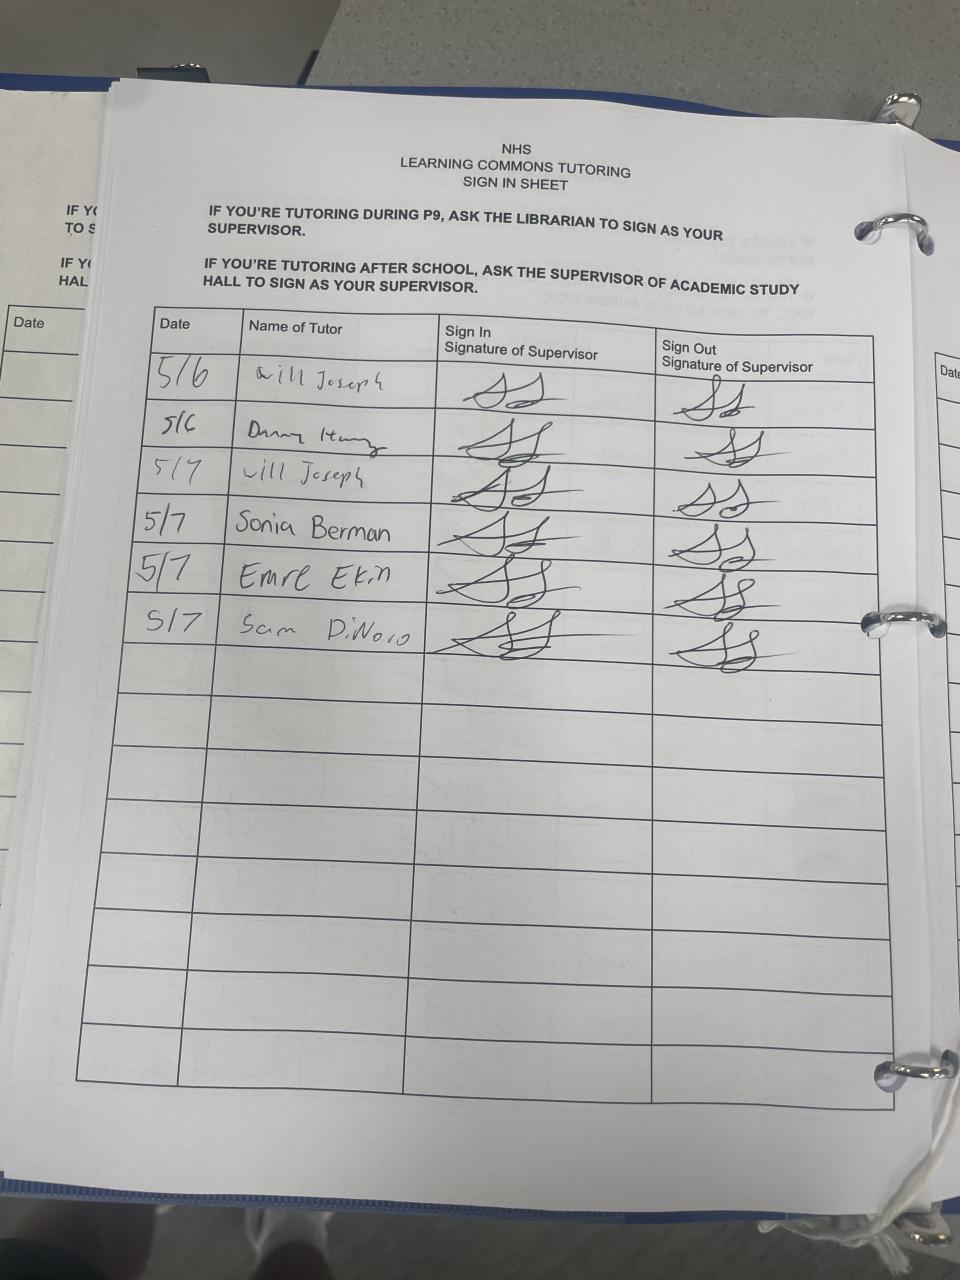 NHS
LEARNING COMMONS TUTORING
SIGN IN SHEET
IF YOU'RE TUTORING DURING P9, ASK THE LIBRARIAN TO SIGN AS YOUR
SUPERVISOR.
IF YOU'RE TUTORING AFTER SCHOOL, ASK THE SUPERVISOR OF ACADEMIC STUDY
HALL TO SIGN AS YOUR SUPERVISOR.
Date Name of Tutor Sign In Signature of Supervisor Sign Out Signature of Supervisor
5/6 Will Joseph
5/6 Danny
5/7 Will Joseph
5/7 Sonia Berman
5/7 Emre Ekin
5/7 Sam DiNoro
IF YO
TO S
IF YO
HAL
Date
Date